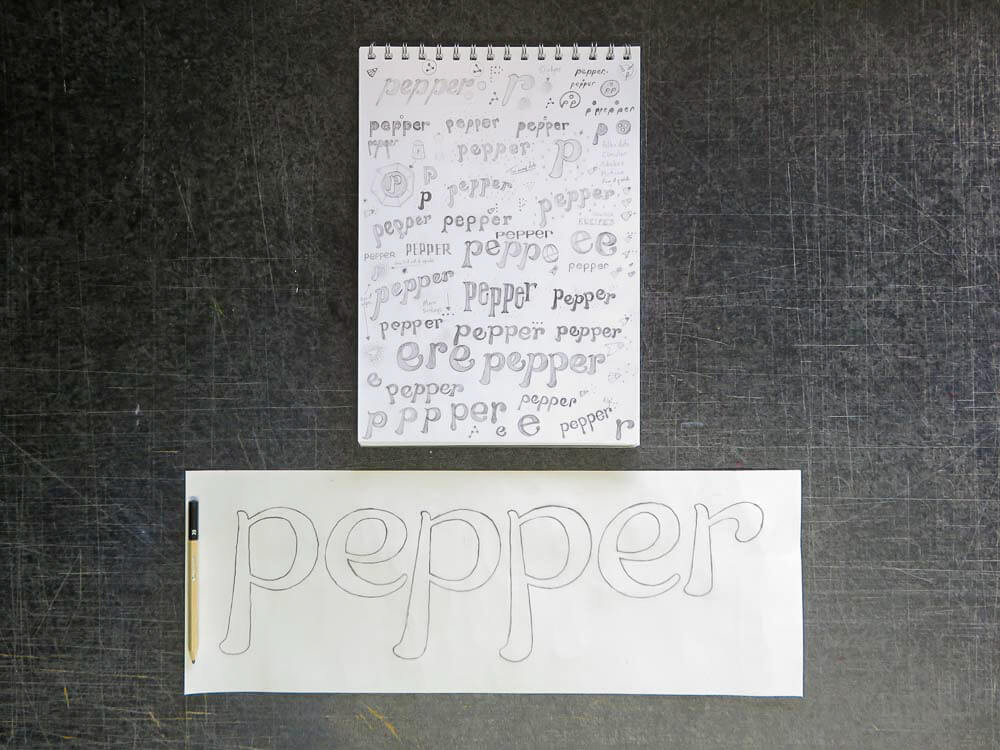 pepper r pepper.
pepper
pepper
pepper pepper pepper p
pepper pepper p
p p
p pepper pepper
pepper pepper RECIPES
pepper
PEPPER PEPPER peppe ee
pepper
pepper pepper pepper
pepper pepper pepper
ere pepper
e pepper pepper
p p p per e e pepper r
pepper